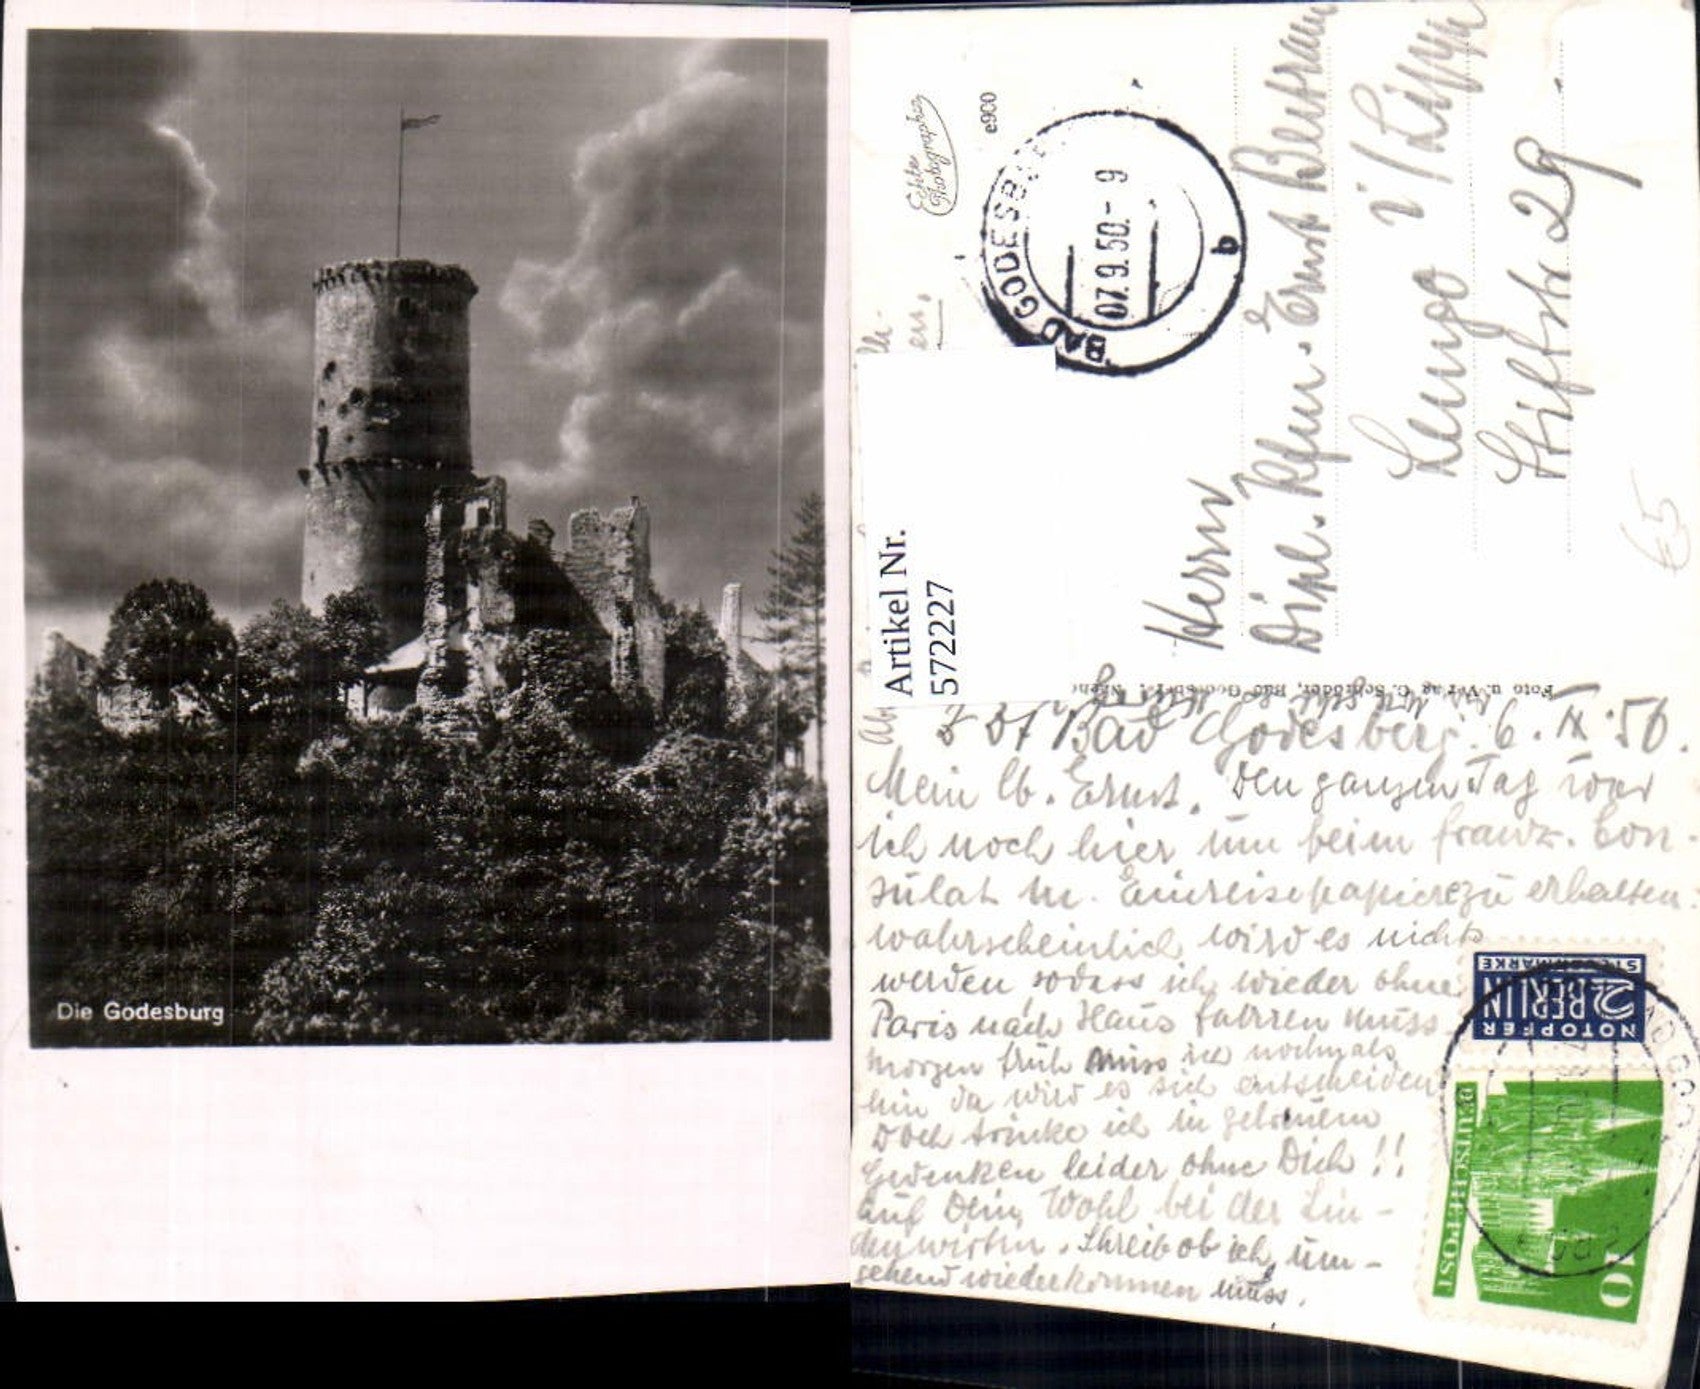 Die Godesburg
Echte
Photographie
e900
BAD GODESBERG
07.9.50.-9
b
Artikel Nr.
572227
Herrn
Dipl. Ernst
Lemgo i/Lippe
Stiftstr 29
€5
Foto u. Verlag C. Schröder, Bad Godesberg
Bad Godesberg. 6.IX.50.
Mein lb. Ernst. Den ganzen Tag war
ich noch hier um beim franz. Con-
sulat m. Einreisepapiere zu erhalten.
wahrscheinlich wird es nichts
werden sodass ich wieder ohne
Paris nach Haus fahren muss.
Morgen früh muss ich nochmals
hin da wird es sich entscheiden
Doch trinke ich in
Gedenken leider ohne Dich!!
Auf Dein Wohl bei der Lin-
denwirtin. Schreib ob ich um-
gehend wiederkommen muss.
NOTOPFER
2 BERLIN
STEUERMARKE
DEUTSCHE POST
10